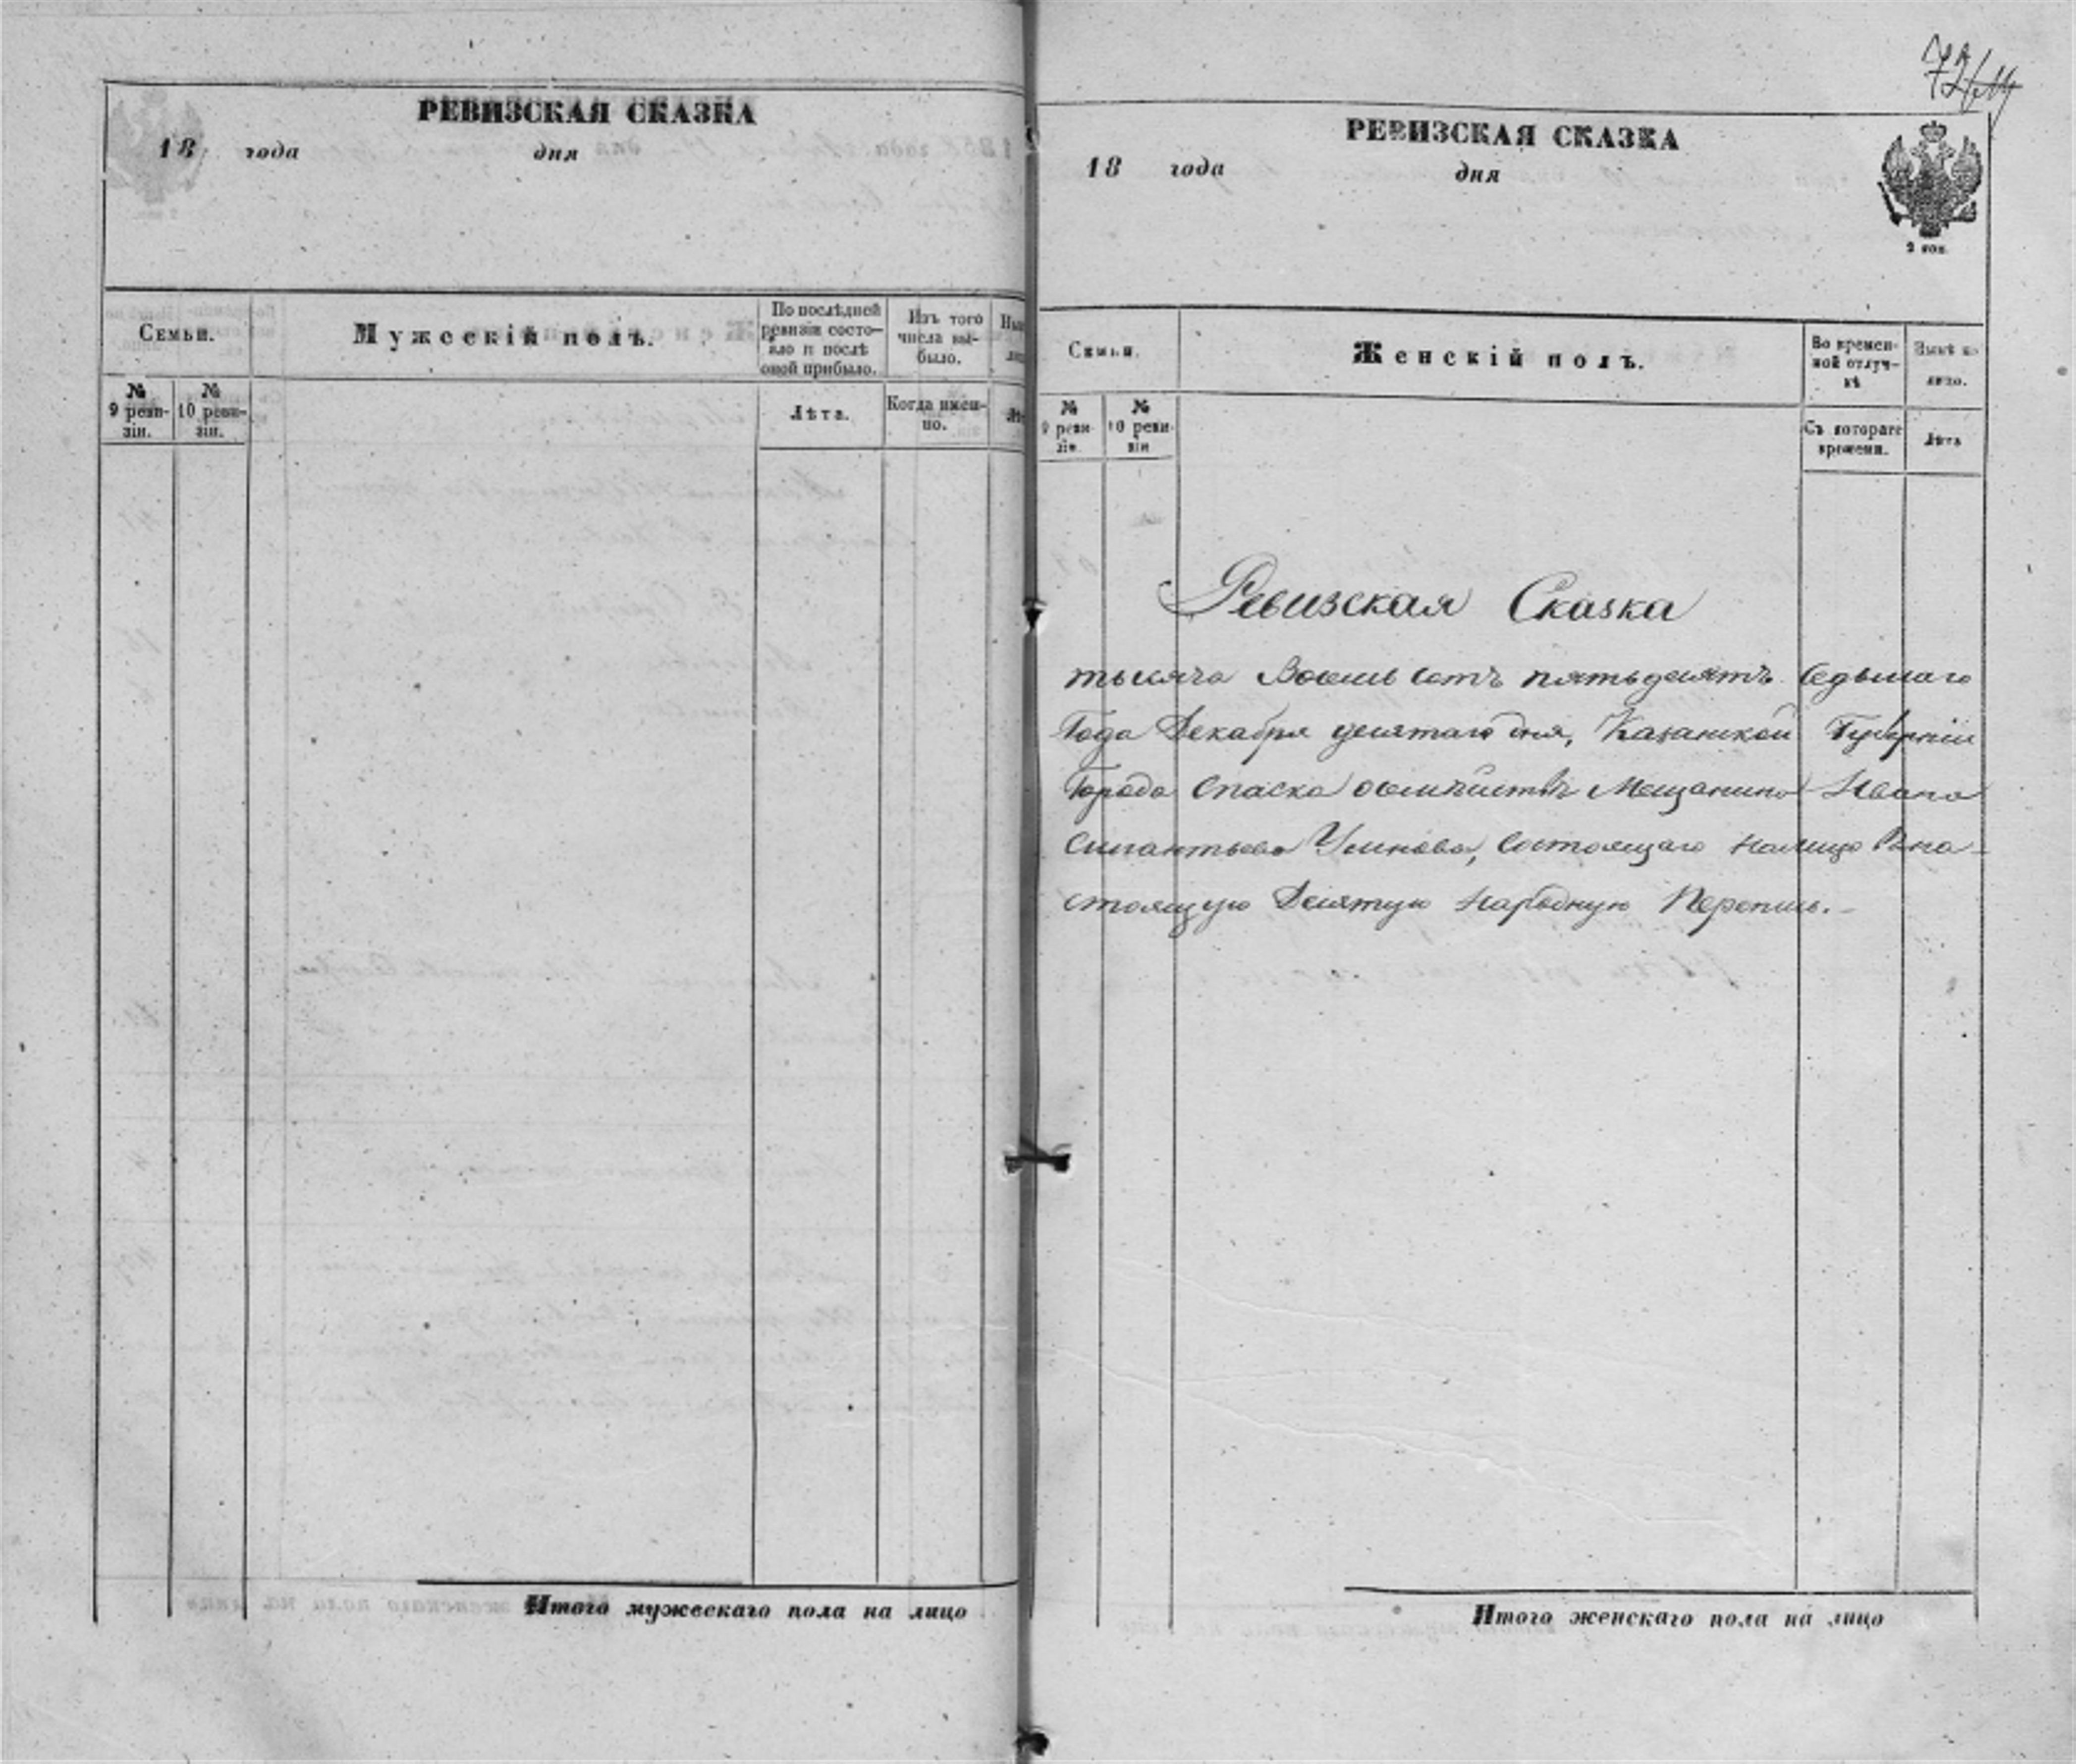 РЕВИЗСКАЯ СКАЗКА
18 года дня
Семьи.
Мужескій полъ.
По послѣдней
ревизіи состо-
яло и послѣ
оной прибыло.
Изъ того
числа вы-
было.
№
9 реви-
зіи.
№
10 реви-
зіи.
Лѣта.
Когда имен-
но.
Итого мужескаго пола на лицо
72
РЕВИЗСКАЯ СКАЗКА
18 года дня
2 коп.
Семьи.
Женскій полъ.
Во времен-
ной отлуч-
кѣ
Нынѣ на
лицо.
№
9 реви-
зіи.
№
10 реви-
зіи
Съ котораго
времени.
Лѣта
Ревизская Сказка
тысяча Восемь сотъ пятьдесятъ седьмаго
Года Декабря десятаго дня, Казанской Губерніи
Города Спаска о семѣйствѣ Мещанина Ивана
Силантьева Умнова, состоящаго налицо Вна-
стоящую Десятую Народную Перепись.-
Итого женскаго пола на лицо